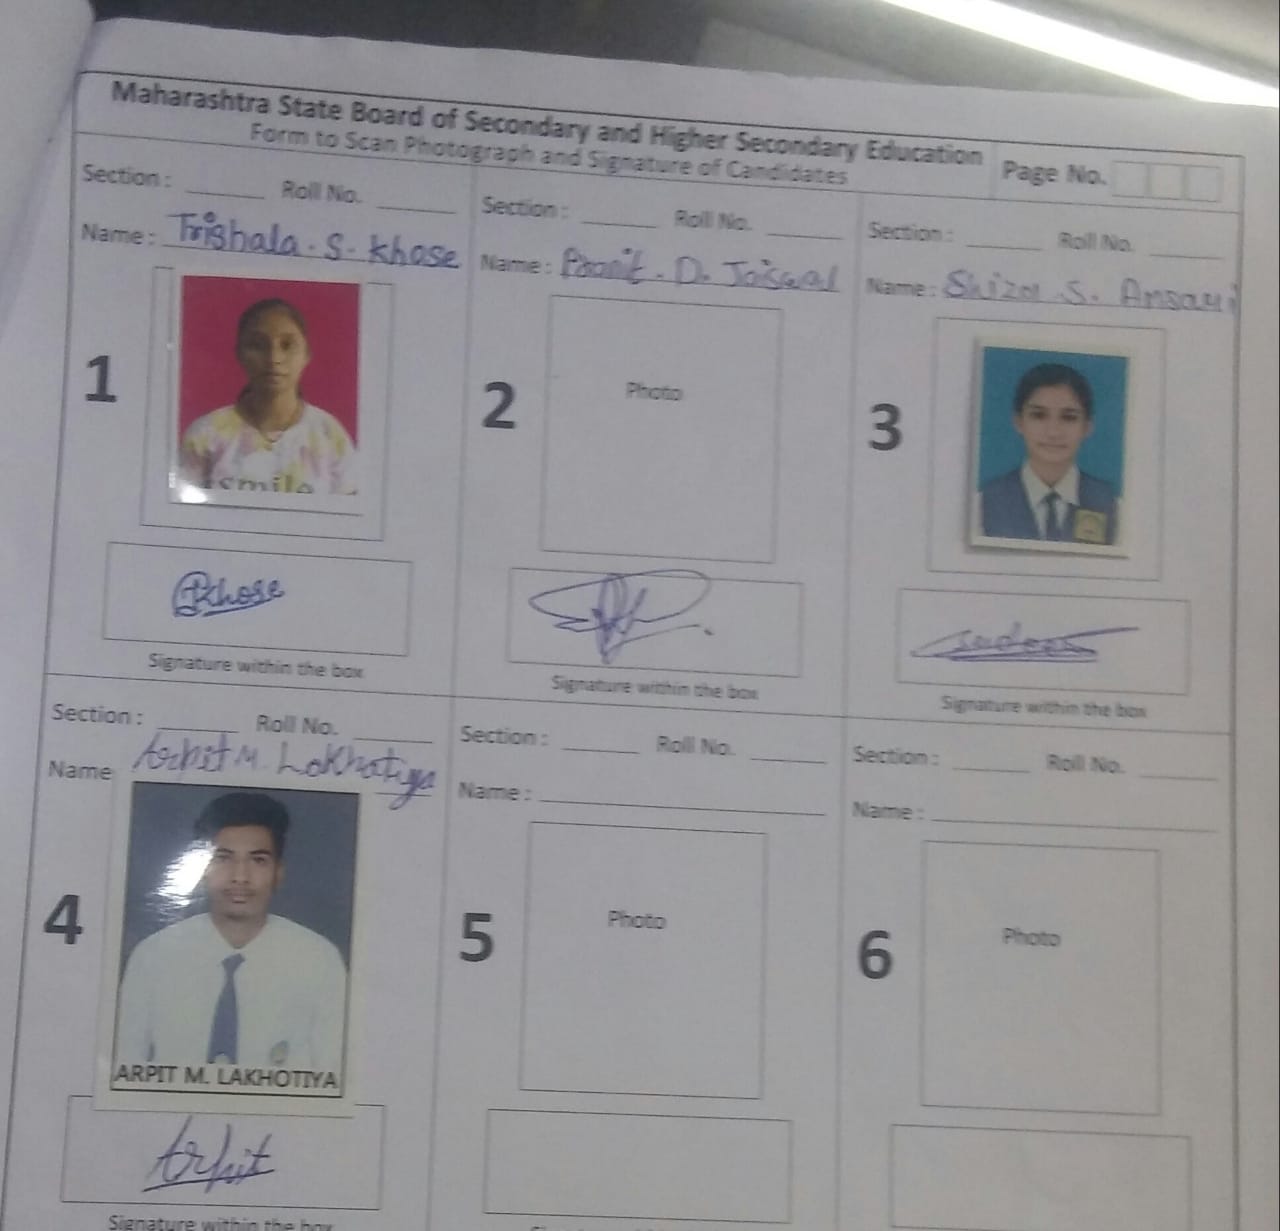 Maharashtra State Board of Secondary and Higher Secondary Education
Form to Scan Photograph and Signature of Candidates
Page No.
Section : Roll No.
Name : Trishala . S . Khose
1
smile
Khose
Signature within the box
Section : Roll No.
Name : D. Jaiswal
2
Photo
Signature within the box
Section : Roll No.
Name : S. Ansari
3
Signature within the box
Section : Roll No.
Name Arpit M. Lakhotiya
4
ARPIT M. LAKHOTIYA
Arpit
Signature within the box
Section : Roll No.
Name :
5
Photo
Section : Roll No.
Name :
6
Photo